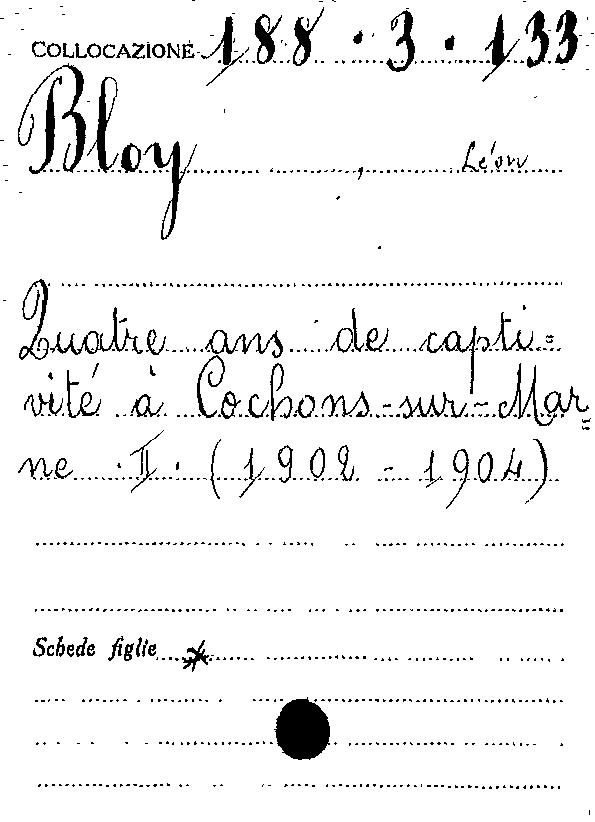 COLLOCAZIONE 188.3.133
Bloy, Léon
Quatre ans de capti=
vité à Cochons-sur-Mar=
ne .II. (1902-1904)
Schede figlie *